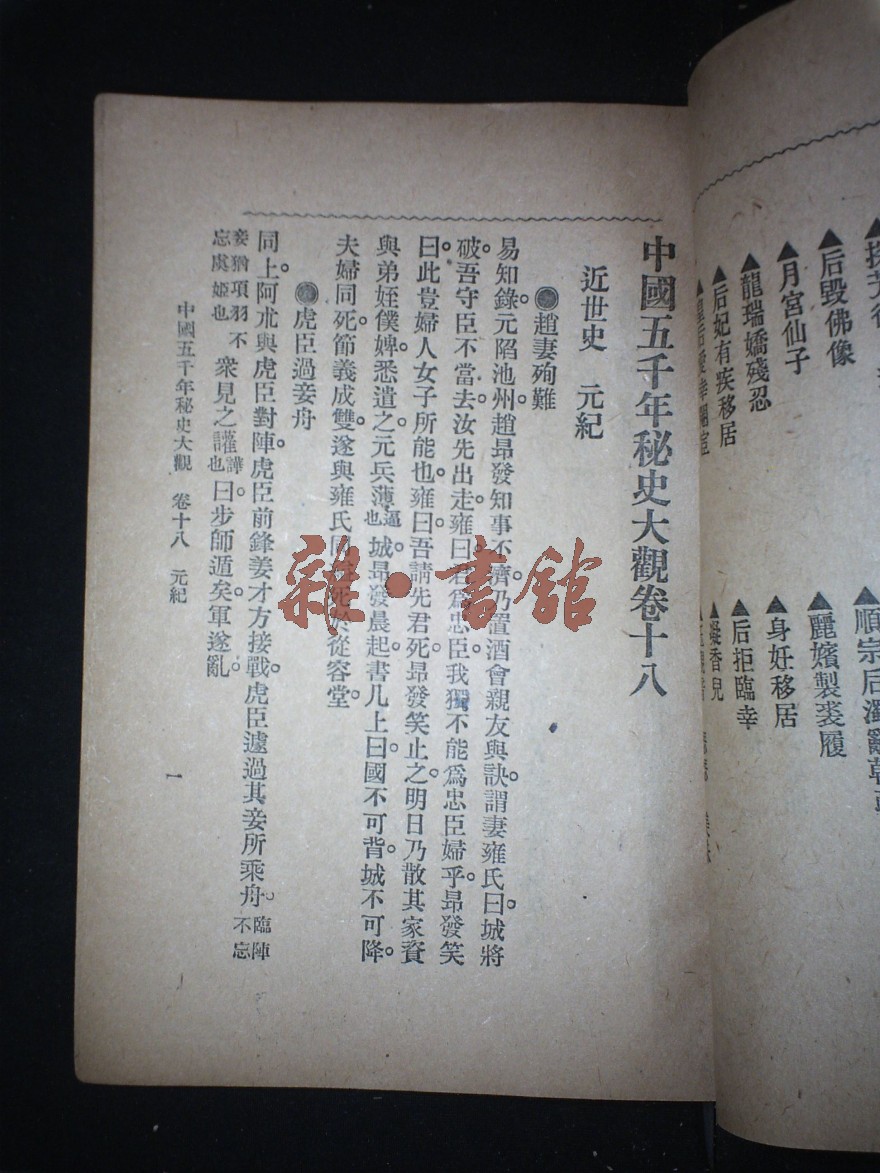 ▲順宗后濁亂朝
▲后毀佛像
▲麗嬪製裘履
▲月宮仙子
▲身妊移居
▲龍瑞嬌殘忍
▲后拒臨幸
▲后妃有疾移居
▲凝香兒
中國五千年秘史大觀卷十八
近世史 元紀
●趙妻殉難
易知錄。元陷池州。趙昂發知事不濟。乃置酒會親友與訣。謂妻雍氏曰。城將
破。吾守臣不當去。汝先出走。雍曰。君爲忠臣。我獨不能爲忠臣婦乎。昂發笑
曰。此豈婦人女子所能也。雍曰。吾請先君死。昂發笑止之。明日乃散其家資
與弟姪僕婢。悉遣之。元兵薄逼也城。昂發晨起書几上曰。國不可背。城不可降。
夫婦同死。節義成雙。遂與雍氏同死於從容堂。
●虎臣過妾舟
同上。阿朮與虎臣對陣。虎臣前鋒姜才方接戰。虎臣遽過其妾所乘舟。臨陣不忘
妾猶項羽不忘虞姬也衆見之讙譁也曰。步師遁矣。軍遂亂。
中國五千年秘史大觀 卷十八 元紀
一
雜·書館